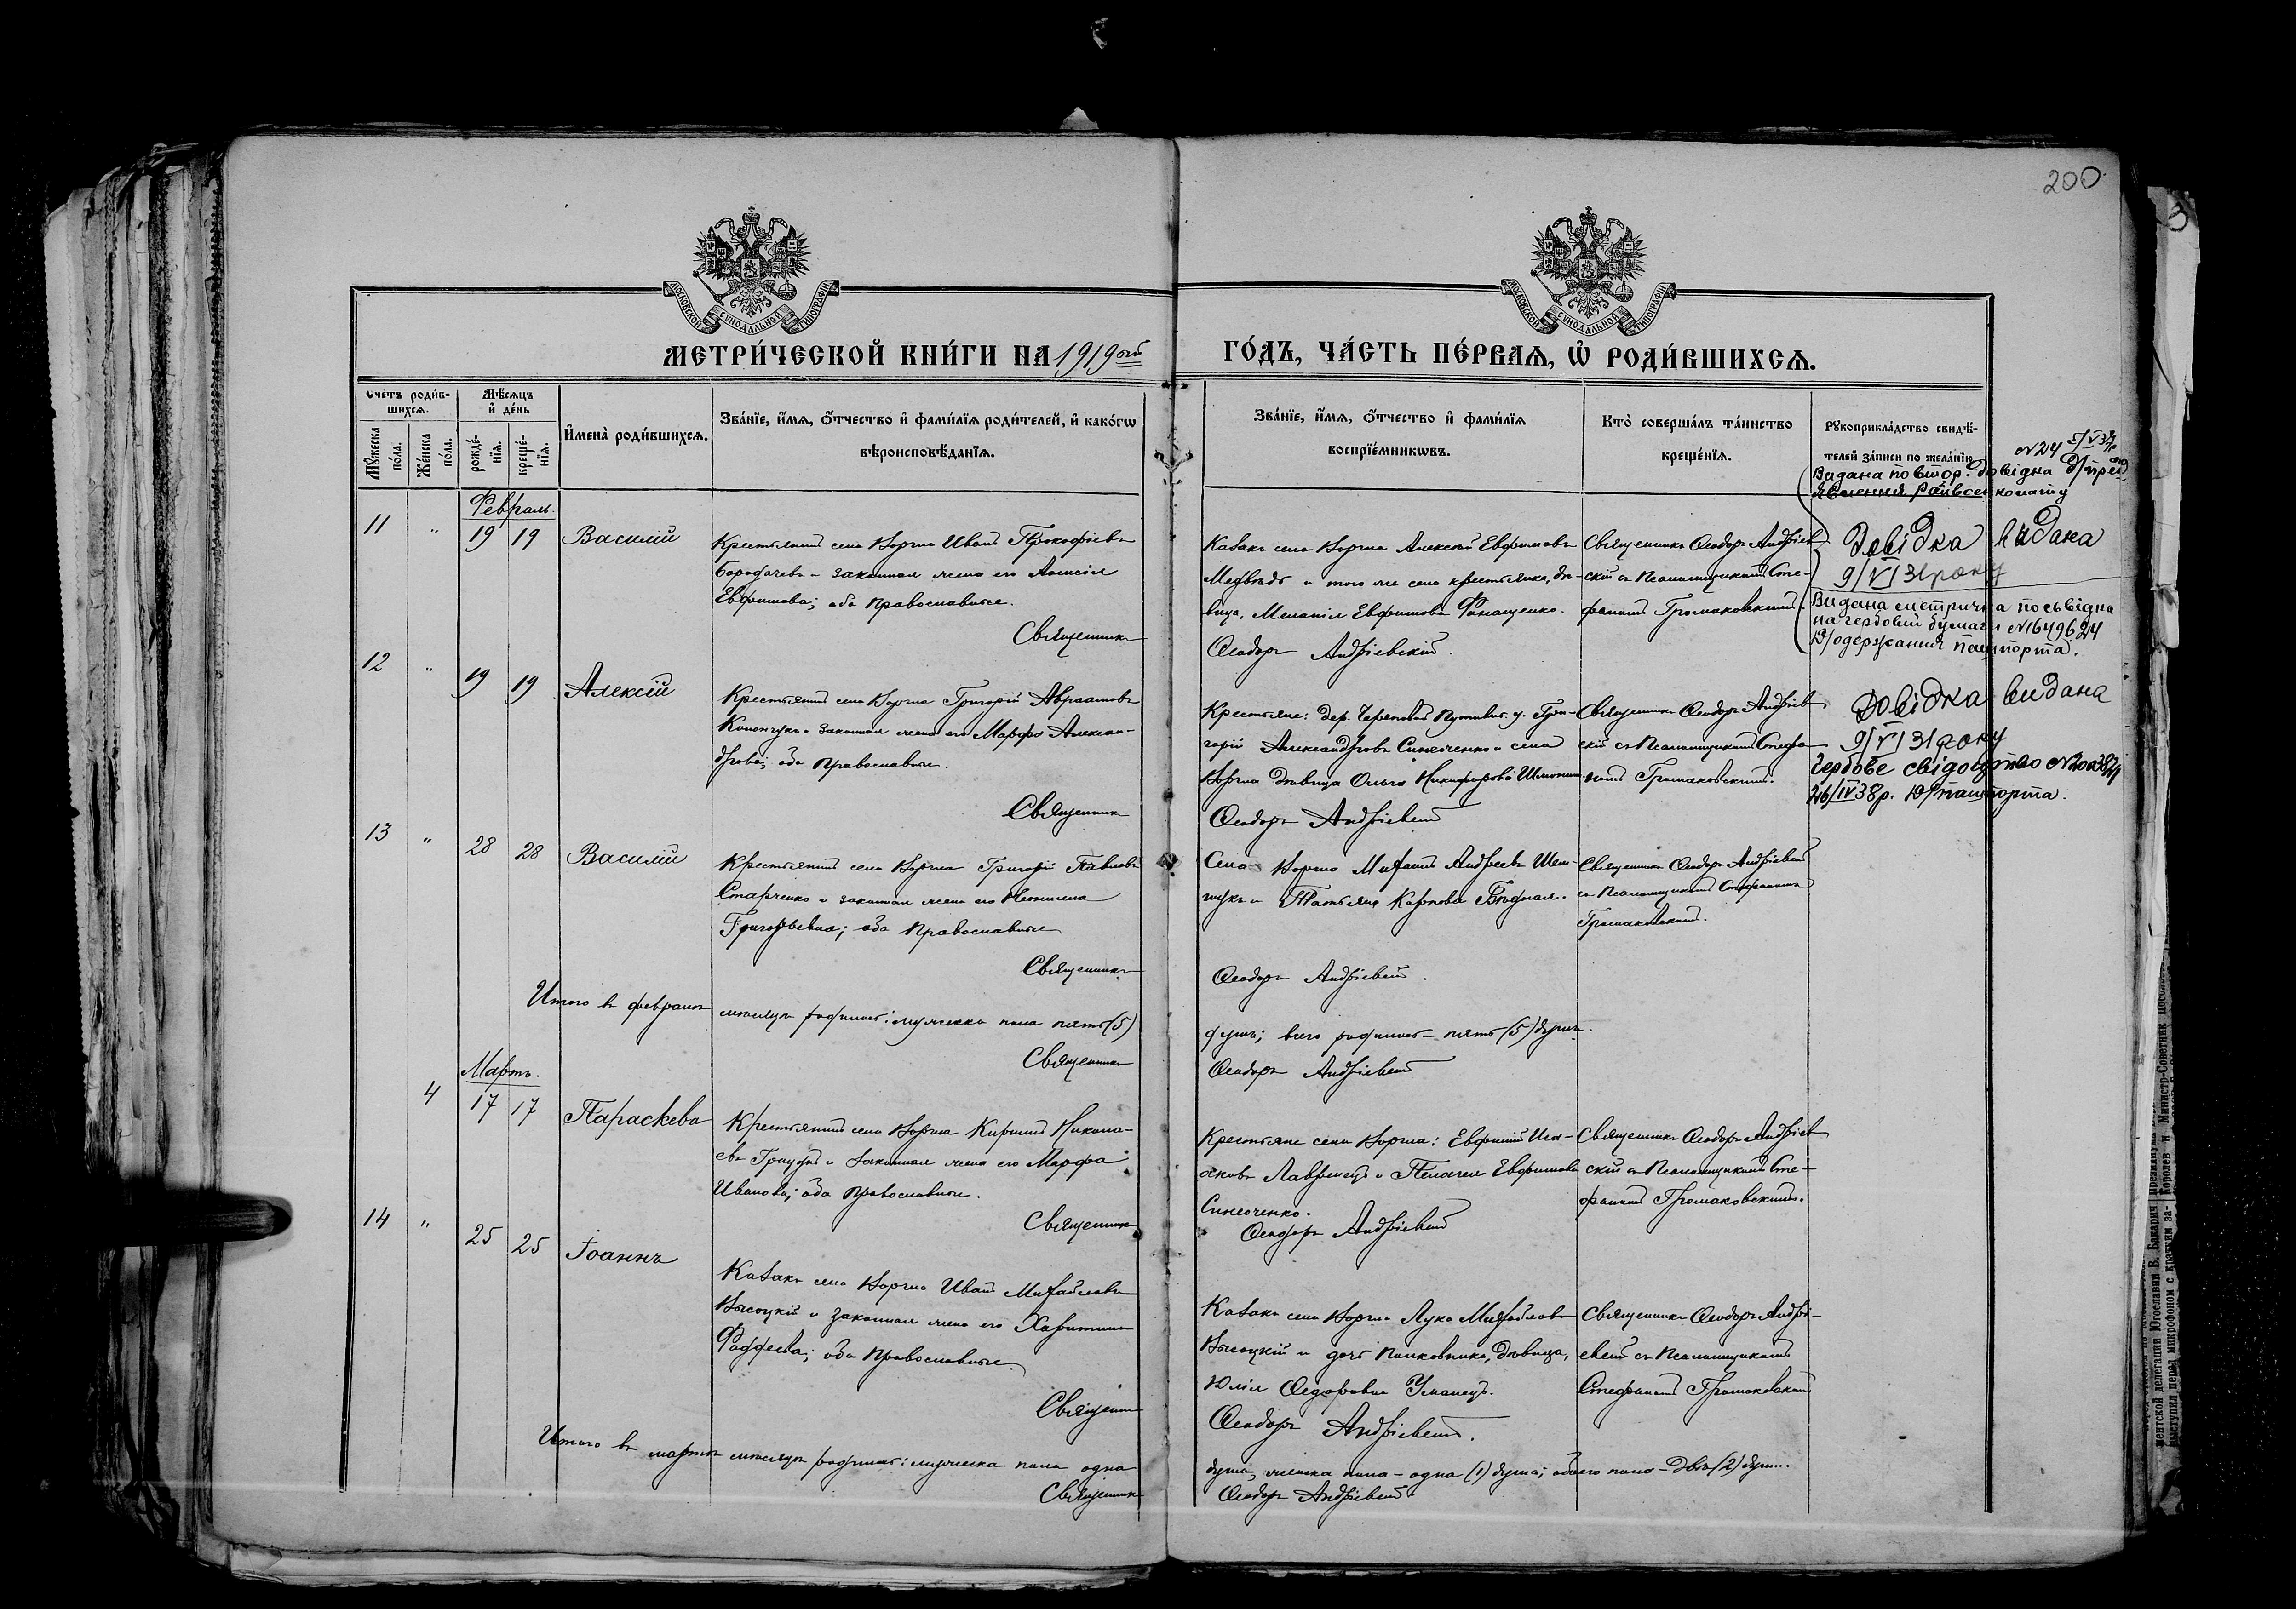 200
МОСКОВСКОЙ СУНОДАЛЬНОЙ ТИПОГРАФІИ
МОСКОВСКОЙ СУНОДАЛЬНОЙ ТИПОГРАФІИ
МЕТРИ́ЧЕСКОЙ КНИ́ГИ НА 1919ый
ГО́ДЪ, ЧА́СТЬ ПЕ́РВАЯ, Ѡ҆ РОДИ́ВШИХСЯ.
Счетъ роди́в-
шихся.
Мꙋжеска по́ла.
Же́нска по́ла.
Мѣ́сяцъ и҆ де́нь
рожде́-нїя.
креще́-нїя.
И҆мена̀ роди́вшихся.
Зва́нїе, и҆́мя, ѻ҆́тчество и҆ фами́лїя роди́телей, и҆ како́гѡ
вѣроисповѣ́данїя.
Зва́нїе, и҆́мя, ѻ҆́тчество и҆ фами́лїя
воспрїе́мникѡвъ.
Кто̀ соверша́лъ та́инство
креще́нїя.
Рꙋкоприкла́дство свидѣ́-
телей за́писи по жела́нїю
№24
Видана повтор. довідка
Февраль.
11 " 19 19 Василій
Крестьянинъ села Воргла Иванъ Прокофіевъ
и законная жена его
Евфимова; оба православные.
Священникъ
Казакъ села Воргла Алексій Евфимовъ
Медвѣдь и того же села крестьянка, дѣ-
вица, Меланія Евфимова
Ѳеодоръ Андріевскій.
Священникъ Ѳеодоръ Андріев-
скій съ Псаломщикомъ Сте-
фаномъ Громаковскимъ.
Довідка видана
9/VI 31 року
Видана метрична посвідка
на гербовій бумаги №1649624
Д/одержання пашпорта.
12 " 19 19 Алексій
Крестьянинъ села Воргла Григорій Авраамовъ
и законная жена его Марфа Алексан-
дрова; оба православные.
Священникъ
Крестьяне: дер. Путивл. у. Гри-
горій Александровъ Синяченко и села
Воргла дѣвица Ольга Никифорова
Ѳеодоръ Андріевскій
Священникъ Ѳеодоръ Андріев-
скій съ Псаломщикомъ Стефа-
номъ Громаковскимъ.
Довідка видана
9/VI 31 року
Гербове свідоцтво
26/IV 38р. Д/пашпорта.
13 " 28 28 Василій
Крестьянинъ села Воргла Григорій Павловъ
Старченко и законная жена его
Григорьевна; оба православные
Священникъ
Села Воргла Михаилъ Андреевъ
и Татьяна Карпова
Ѳеодоръ Андріевскій.
Священникъ Ѳеодоръ Андріевскій
съ Псаломщикомъ Стефаномъ
Громаковскимъ.
Итого въ февралѣ мѣсяцѣ родилось: мужеска пола пять (5)
душъ; всего родилось – пять (5) душъ.
Священникъ
Ѳеодоръ Андріевскій
Мартъ.
4 17 17 Параскева
Крестьянинъ села Воргла Кириллъ Никола-
евъ и законная жена его Марфа
Иванова; оба православные.
Священникъ
Крестьяне села Воргла: Евфимій Иса-
аковъ Лавринецъ и Пелагея Евфимова
Синяченко.
Ѳеодоръ Андріевскій
Священникъ Ѳеодоръ Андріев-
скій съ Псаломщикомъ Сте-
фаномъ Громаковскимъ.
14 " 25 25 Іоаннъ
Казакъ села Воргла Иванъ Михайловъ
Высоцкій и законная жена его Харитина
Фаддеева; оба православные.
Священникъ
Казакъ села Воргла Лука Михайловъ
Высоцкій и дочь Полковника, дѣвица,
Юлія Ѳедоровна Уманецъ.
Ѳеодоръ Андріевскій.
Священникъ Ѳеодоръ Андрі-
евскій съ Псаломщикомъ
Стефаномъ Громаковскимъ
Итого въ мартѣ мѣсяцѣ родилось: мужеска пола одна
душа, женска пола – одна (1) душа; обоего пола – двѣ (2) души.
Священникъ
Ѳеодоръ Андріевскій